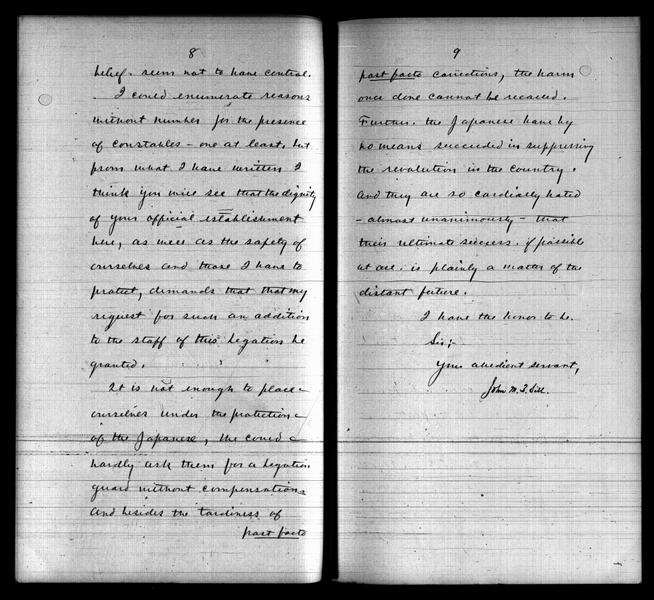 8
belief. seem not to have control.
I could enumerate reasons
without number for the presence
of constables - one at least. but
from what I have written I
think you will see that the dignity
of your official establishment
here, as well as the safety of
ourselves and those I have to
protect, demands that that my
request for such an addition
to the staff of this legation be
granted.
It is not enough to place
ourselves under the protection
of the Japanese, we could
hardly ask them for a legation
guard without compensation.
And besides the tardiness of
post facto
9
post facto corrections, the harm
once done cannot be recalled.
Further. the Japanese have by
no means succeeded in suppressing
the revolution in the country.
And they are so cordially hated
- almost unanimously - that
their ultimate success. if possible
at all. is plainly a matter of the
distant future.
I have the honor to be.
Sir;-
Your obedient servant,
John M. B. Sill.